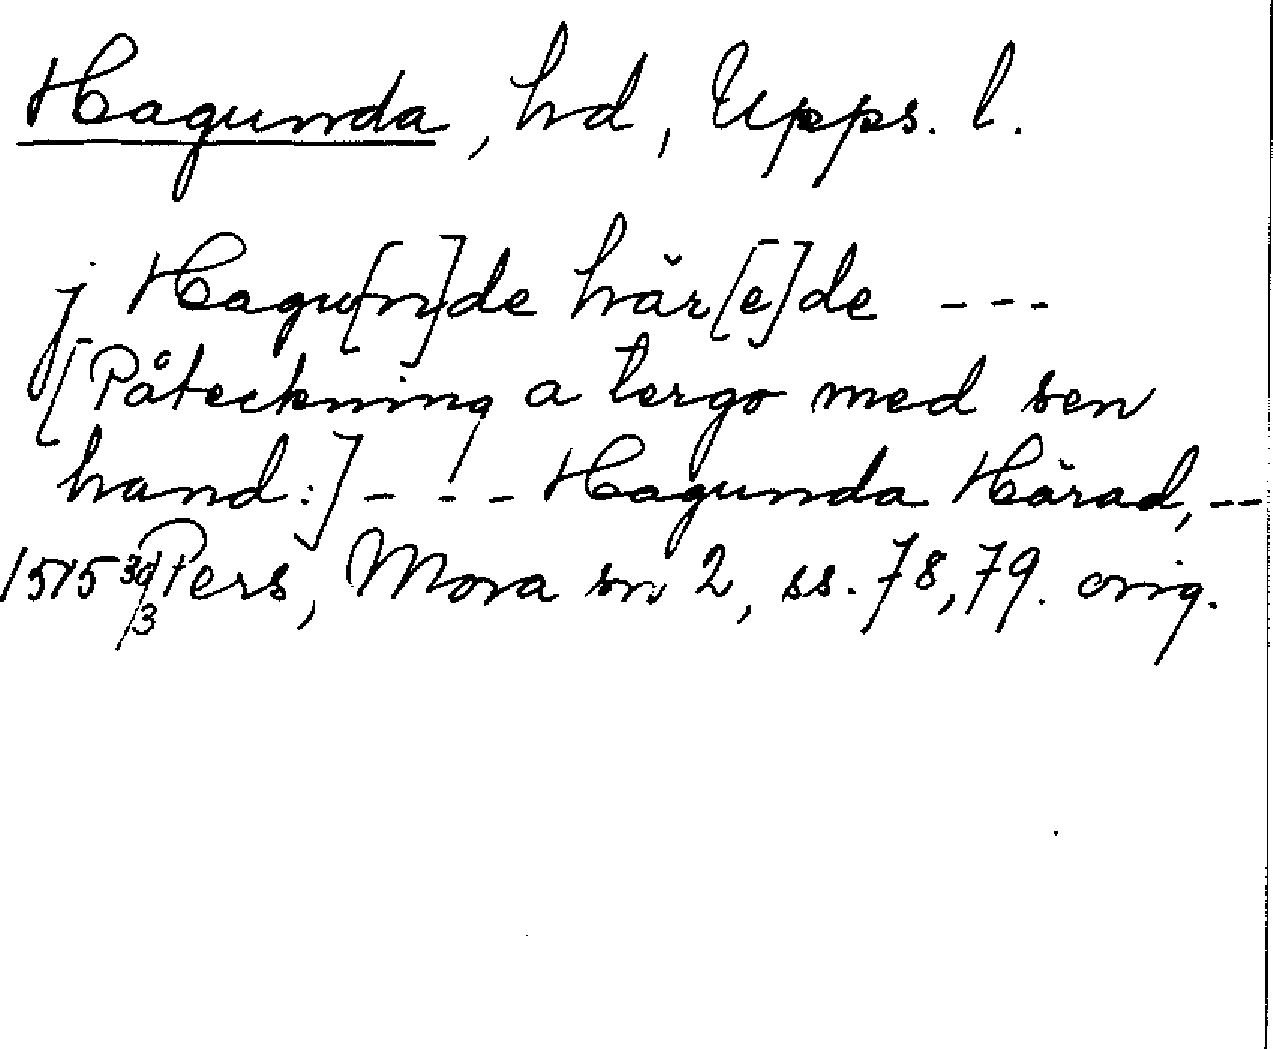 Hagunda, hd, Upps. l.
j Hagu[n]de här[e]de - - -
[Påteckning a tergo med sen
hand:] - - - Hagunda Härad, --
1515 30/3 Pers, Mora sn 2, ss. 78, 79. orig.